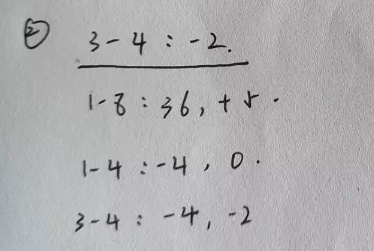 ② 3-4 : -2.
1-8 : 36, +5.
1-4 : -4, 0.
3-4 : -4, -2